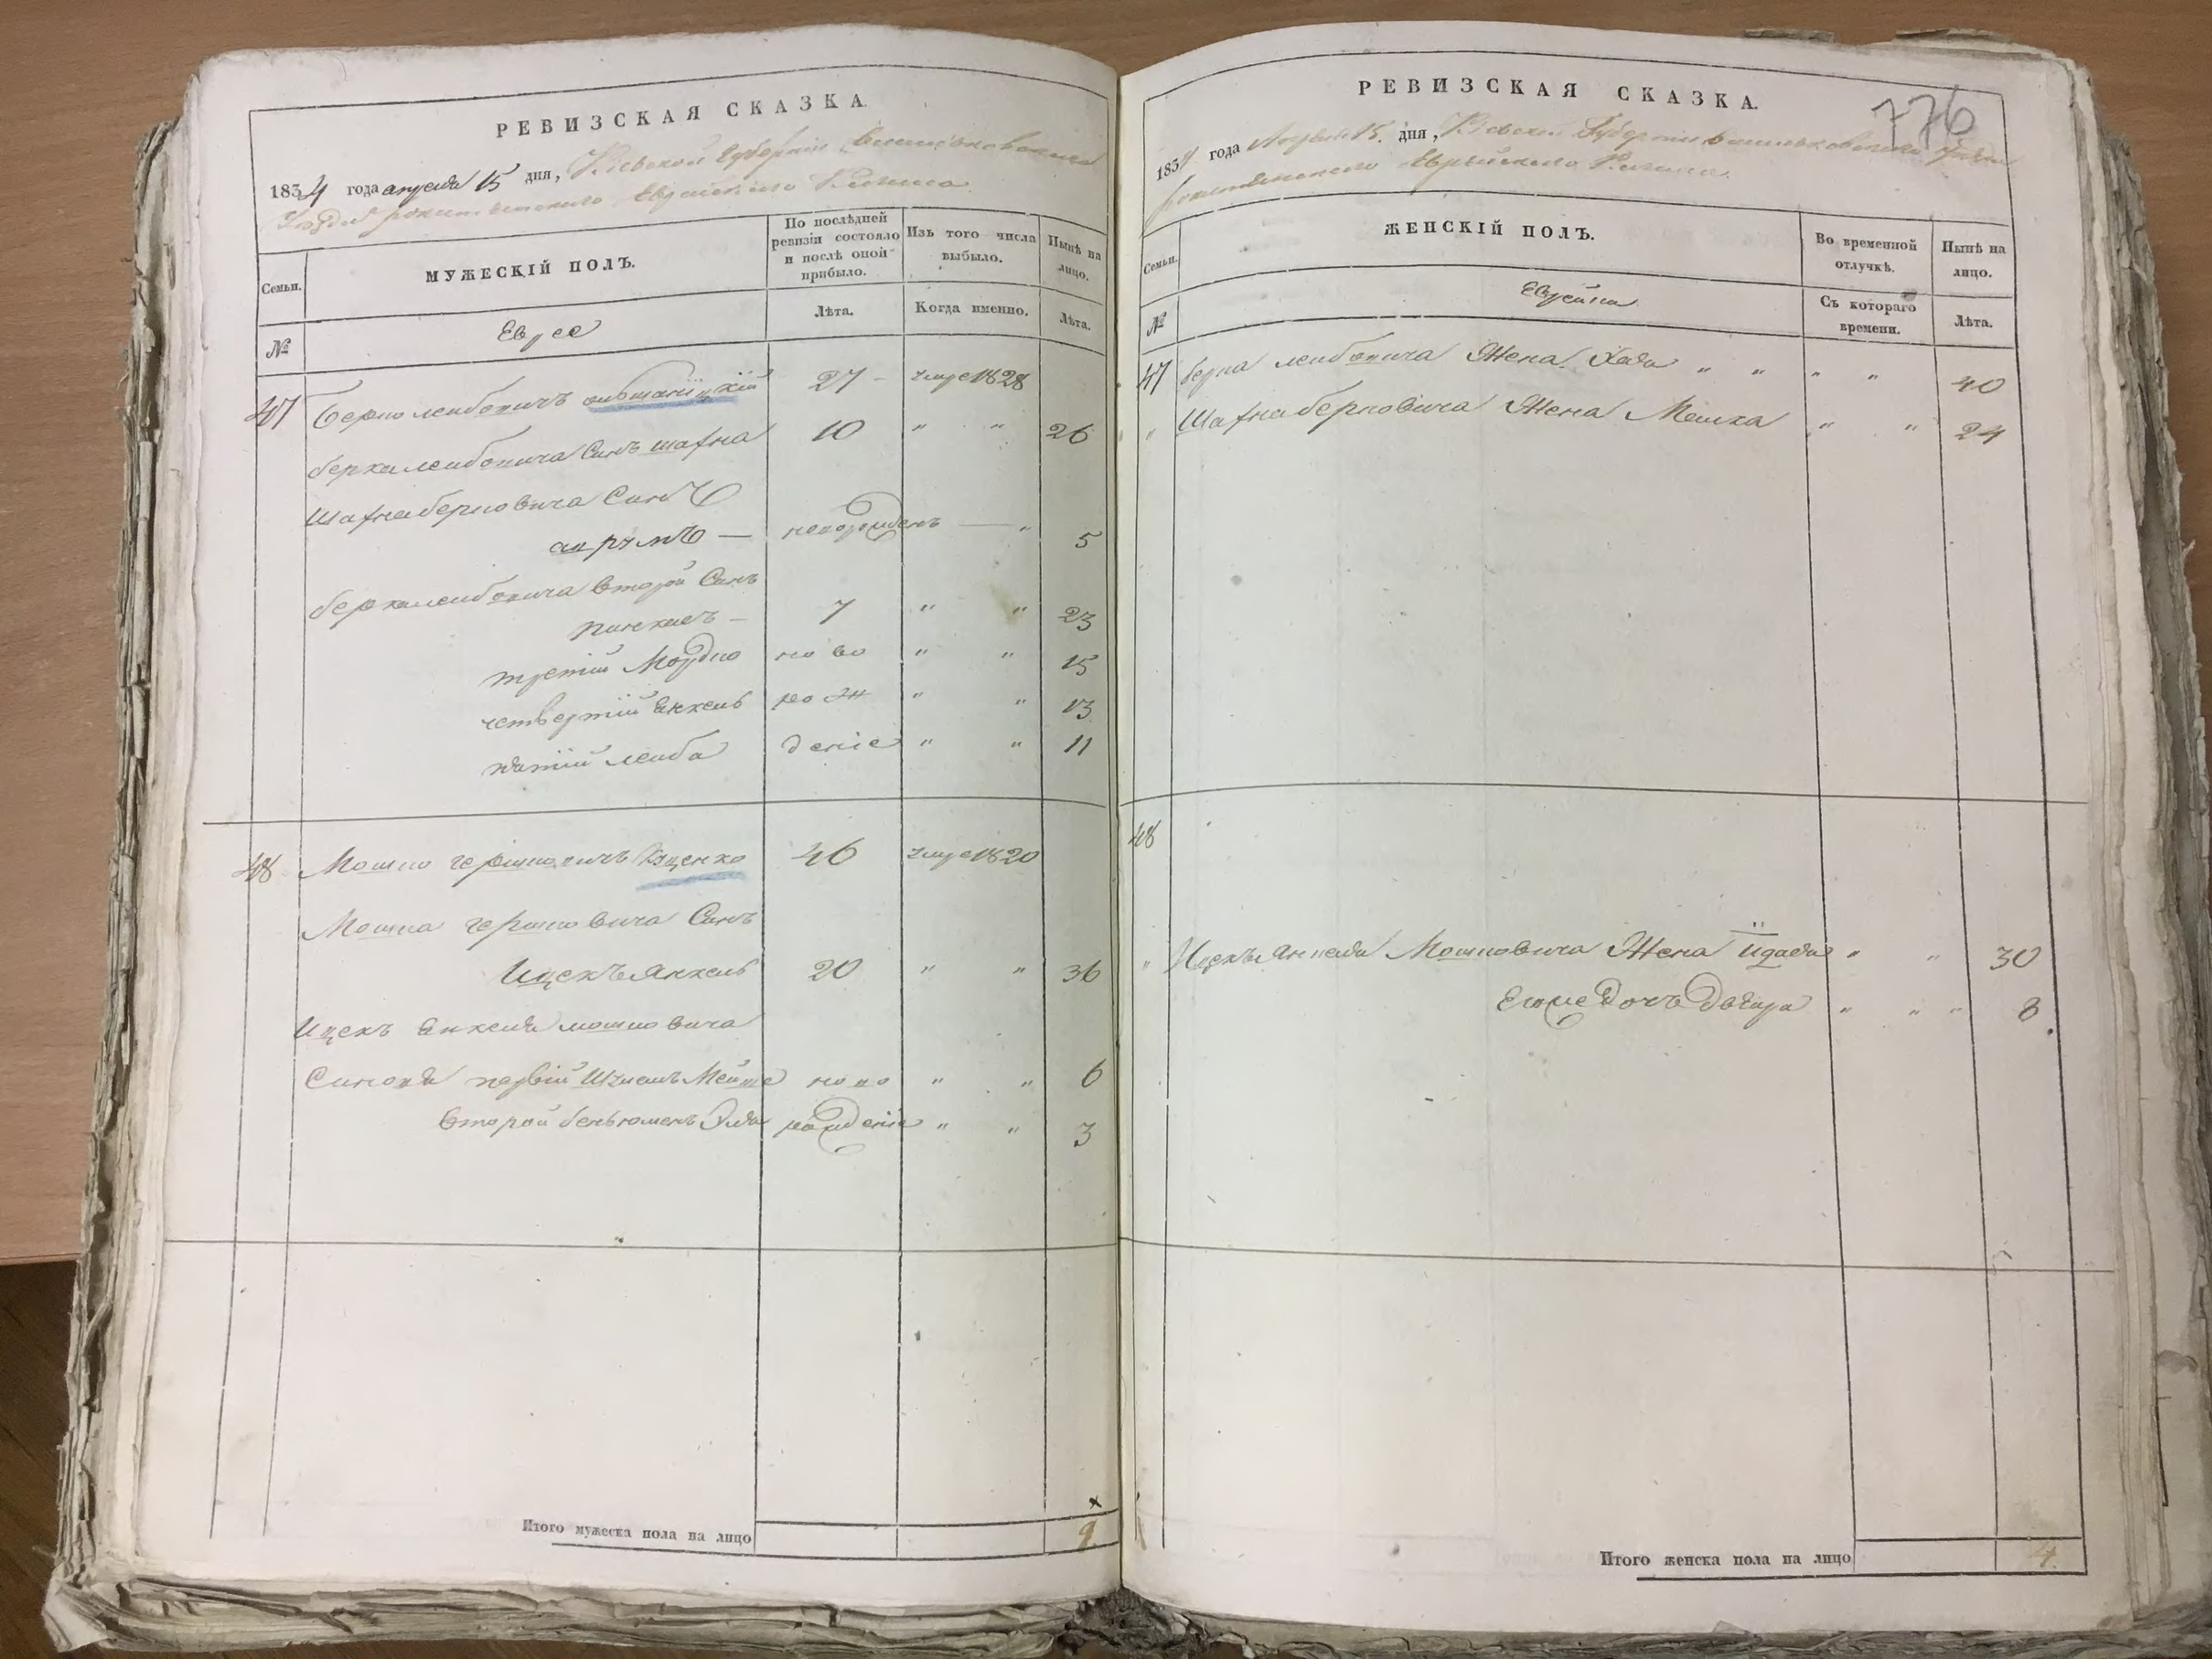 РЕВИЗСКАЯ СКАЗКА.
1834 года апреля 15 дня, Кіевской Губерніи Васильковского
Уезда рокитянского Еврейского Кагала
Семьи.
МУЖЕСКІЙ ПОЛЪ.
По послѣдней ревизіи состояло и послѣ оной прибыло.
Изъ того числа выбыло.
Нынѣ на лицо.
№
Евреє
Лѣта.
Когда именно.
Лѣта.
47 Берко лейбовичъ ольшаницкій 27 - умре 1828
берка лейбовича Синъ шафна 10 " " 26
Шафна берковича Синъ
аврумъ — новорожденъ — " 5
берка лейбовича второй Синъ
пинхасъ — 7 " " 23
третій Мордко но во " " 15
четвертій Янкель рож " " 13
пятій лейба деніе " " 11
48 Мошко гершковичъ Куценко 46 умре 1820
Мошка гершковича Синъ
Ицекъ Янкель 20 " " 36
Ицекъ Янкеля мошковича
Синовя первій Шмиль Мейше ново " " 6
второй беньюменъ Эля рожденіе " " 3
Итого мужеска пола на лицо 9.
РЕВИЗСКАЯ СКАЗКА.
776
1834 года Апреля 15. дня, Кіевской Губерніи Васильковского уезда
рокитянского Еврейского Кагала.
Семьи.
ЖЕНСКІЙ ПОЛЪ.
Во временной отлучкѣ.
Нынѣ на лицо.
№
Еврейки
Съ котораго времени.
Лѣта.
47 берка лейбовича Жена Хая " " " " 40
" Шафна берковича Жена Малка " " 24
48
" Ицекъ Янкеля Мошковича Жена Идася " " 30
Егоже Дочъ Двейра " " " 8
Итого женска пола на лицо 4.